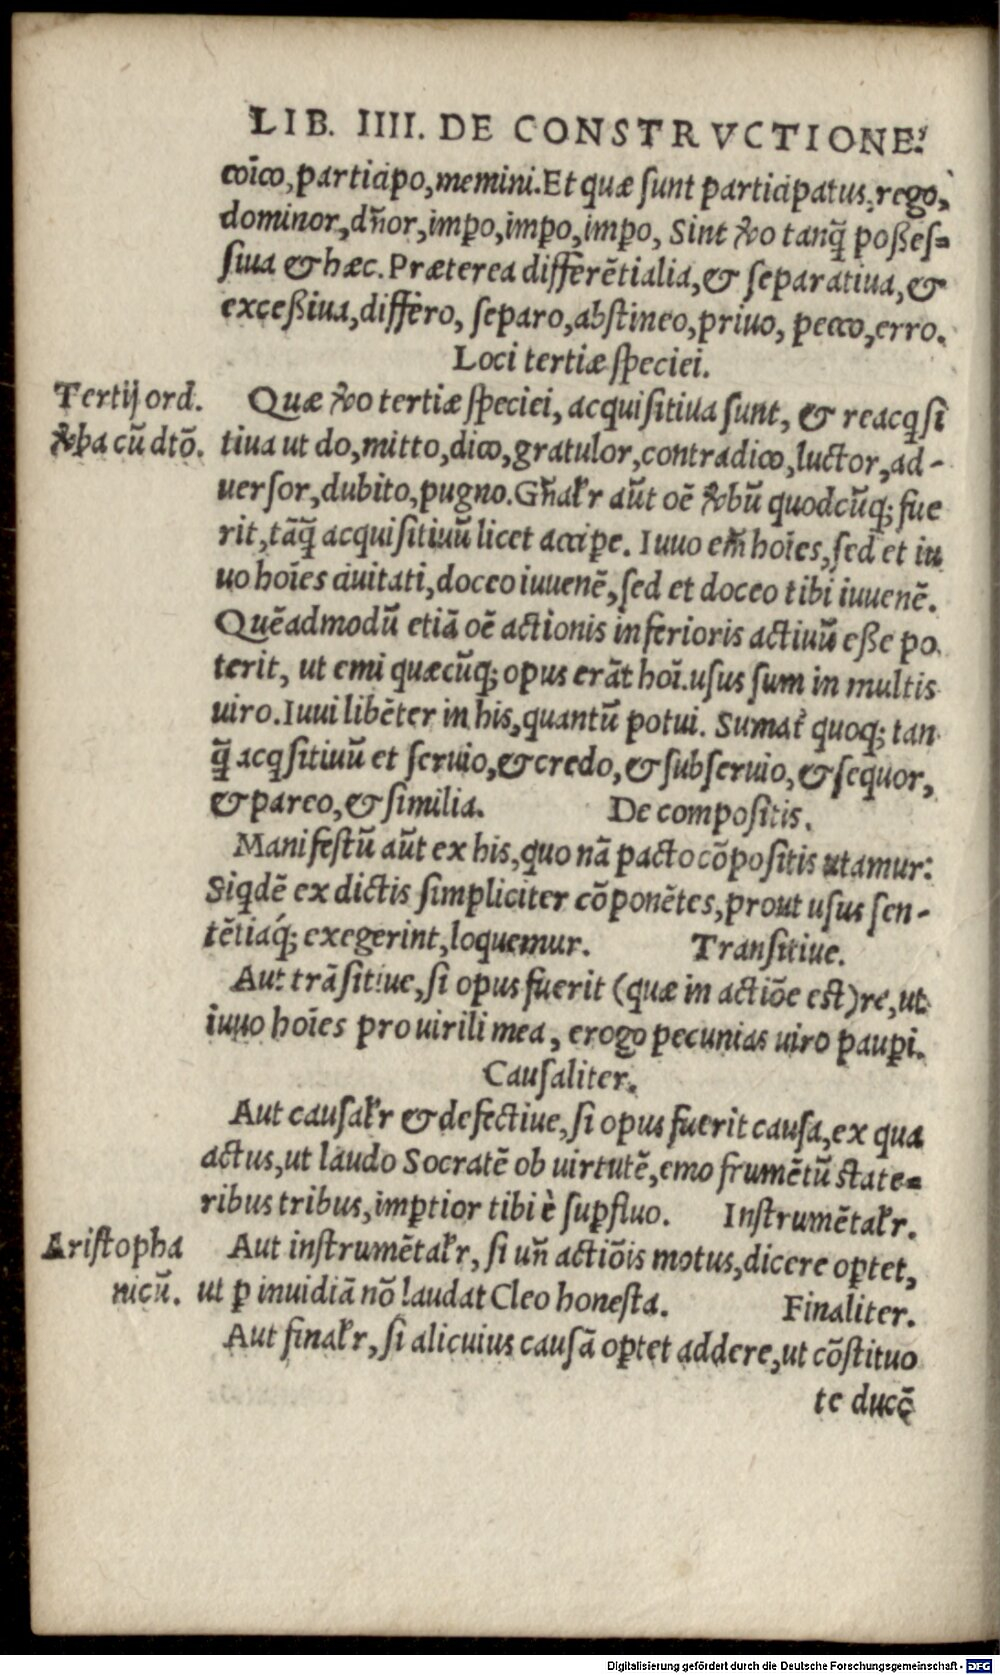 LIB. IIII. DE CONSTRVCTIONE.
coı̄co, participo, memini. Et quæ sunt participatus, rego,
dominor, dn̄or, imꝑo, imꝑo, imꝑo, Sint ꝟo tanq̄ poßes⸗
siua & hæc. Præterea differētialia, & separatiua, &
exceßiua, differo, separo, abstineo, priuo, pecco, erro.
Loci tertiæ speciei.
Tertij ord.
ꝟba cū dtō.
Quæ ꝟo tertiæ speciei, acquisitiua sunt, & reacq̣si
tiua ut do, mitto, dico, gratulor, contradico, luctor, ad-
uersor, dubito, pugno. Gn̄aƚr aūt oē ꝟbū quodcūq; fue
rit, tāq̄ acquisitiuū licet acciꝑe. Iuuo em̄ hoı̄es, sed et iu
uo hoı̄es ciuitati, doceo iuuenē, sed et doceo tibi iuuenē.
Quēadmodū etiā oē actionis inferioris actiuū eße po
terit, ut emi quæcūq; opus erāt hoı̄. usus sum in multis
uiro. Iuui libēter in his, quantū potui. Sumat̃ quoq; tan
q̄ acq̣sitiuū et seruio, & credo, & subseruio, & sequor,
& pareo, & similia. De compositis.
Manifestū aūt ex his, quo nā pacto cōpositis utamur:
Siqdē ex dictis simpliciter cōponētes, prout usus sen-
tētiaq́; exegerint, loquemur. Transitiue.
Aut trāsitiue, si opus fuerit (quæ in actiōe est) re, ut
iuuo hoı̄es pro uirili mea, erogo pecunias uiro pauꝑi.
Causaliter.
Aut causaƚr & defectiue, si opus fuerit causa, ex qua
actus, ut laudo Socratē ob uirtutē, emo frumētū state⸗
ribus tribus, imꝑtior tibi è suꝑfluo. Instrumētaƚr.
Aristopha
nicū.
Aut instrumētaƚr, si un̄ actiōis motus, dicere oꝑtet,
ut ꝑ inuidiā nō laudat Cleo honesta. Finaliter.
Aut finaƚr, si alicuius causā oꝑtet addere, ut cōstituo
te ducē
Digitalisierung gefördert durch die Deutsche Forschungsgemeinschaft - DFG